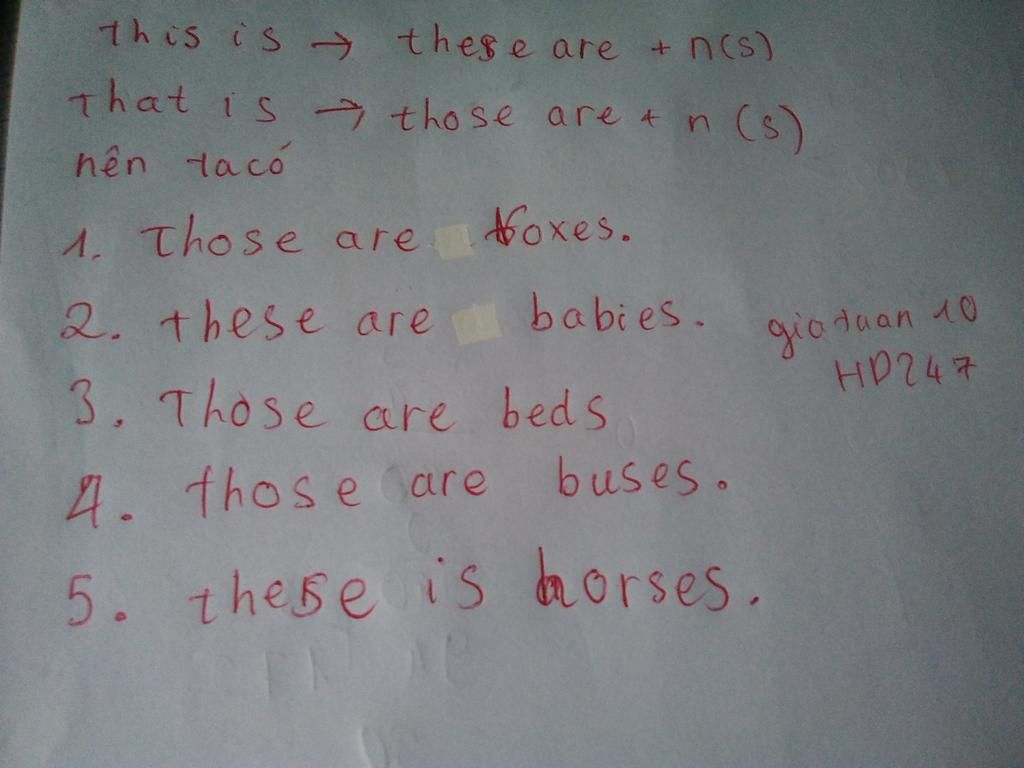 this is → these are + n(s)
That is → those are + n (s)
nên ta có
1. Those are foxes.
2. these are babies.
giatuan 10
HD247
3. Those are beds
4. those are buses.
5. these is horses.